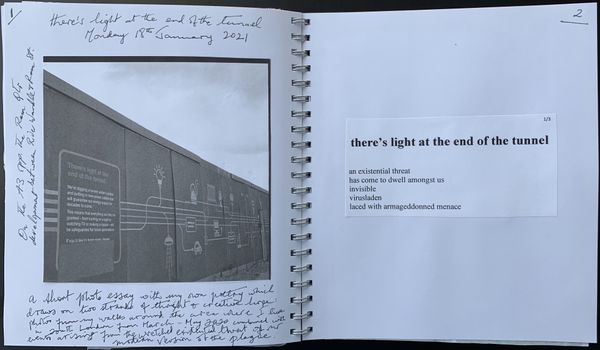 1
there's light at the end of the tunnel
Monday 18th January 2021
On the A3 opp. the Ram Qtr
development between River Wandle & Ram St.
There's light at the
end of the tunnel.
a short photo essay with my own poetry which
draws on two strands of thought & creative hope
photos from my walks around the area where I live
in South London from March - May 2020 combined with
events arising from the wretched existential threat of our
modern version of the plague.
2
1/3
there's light at the end of the tunnel
an existential threat
has come to dwell amongst us
invisible
virusladen
laced with armageddonned menace